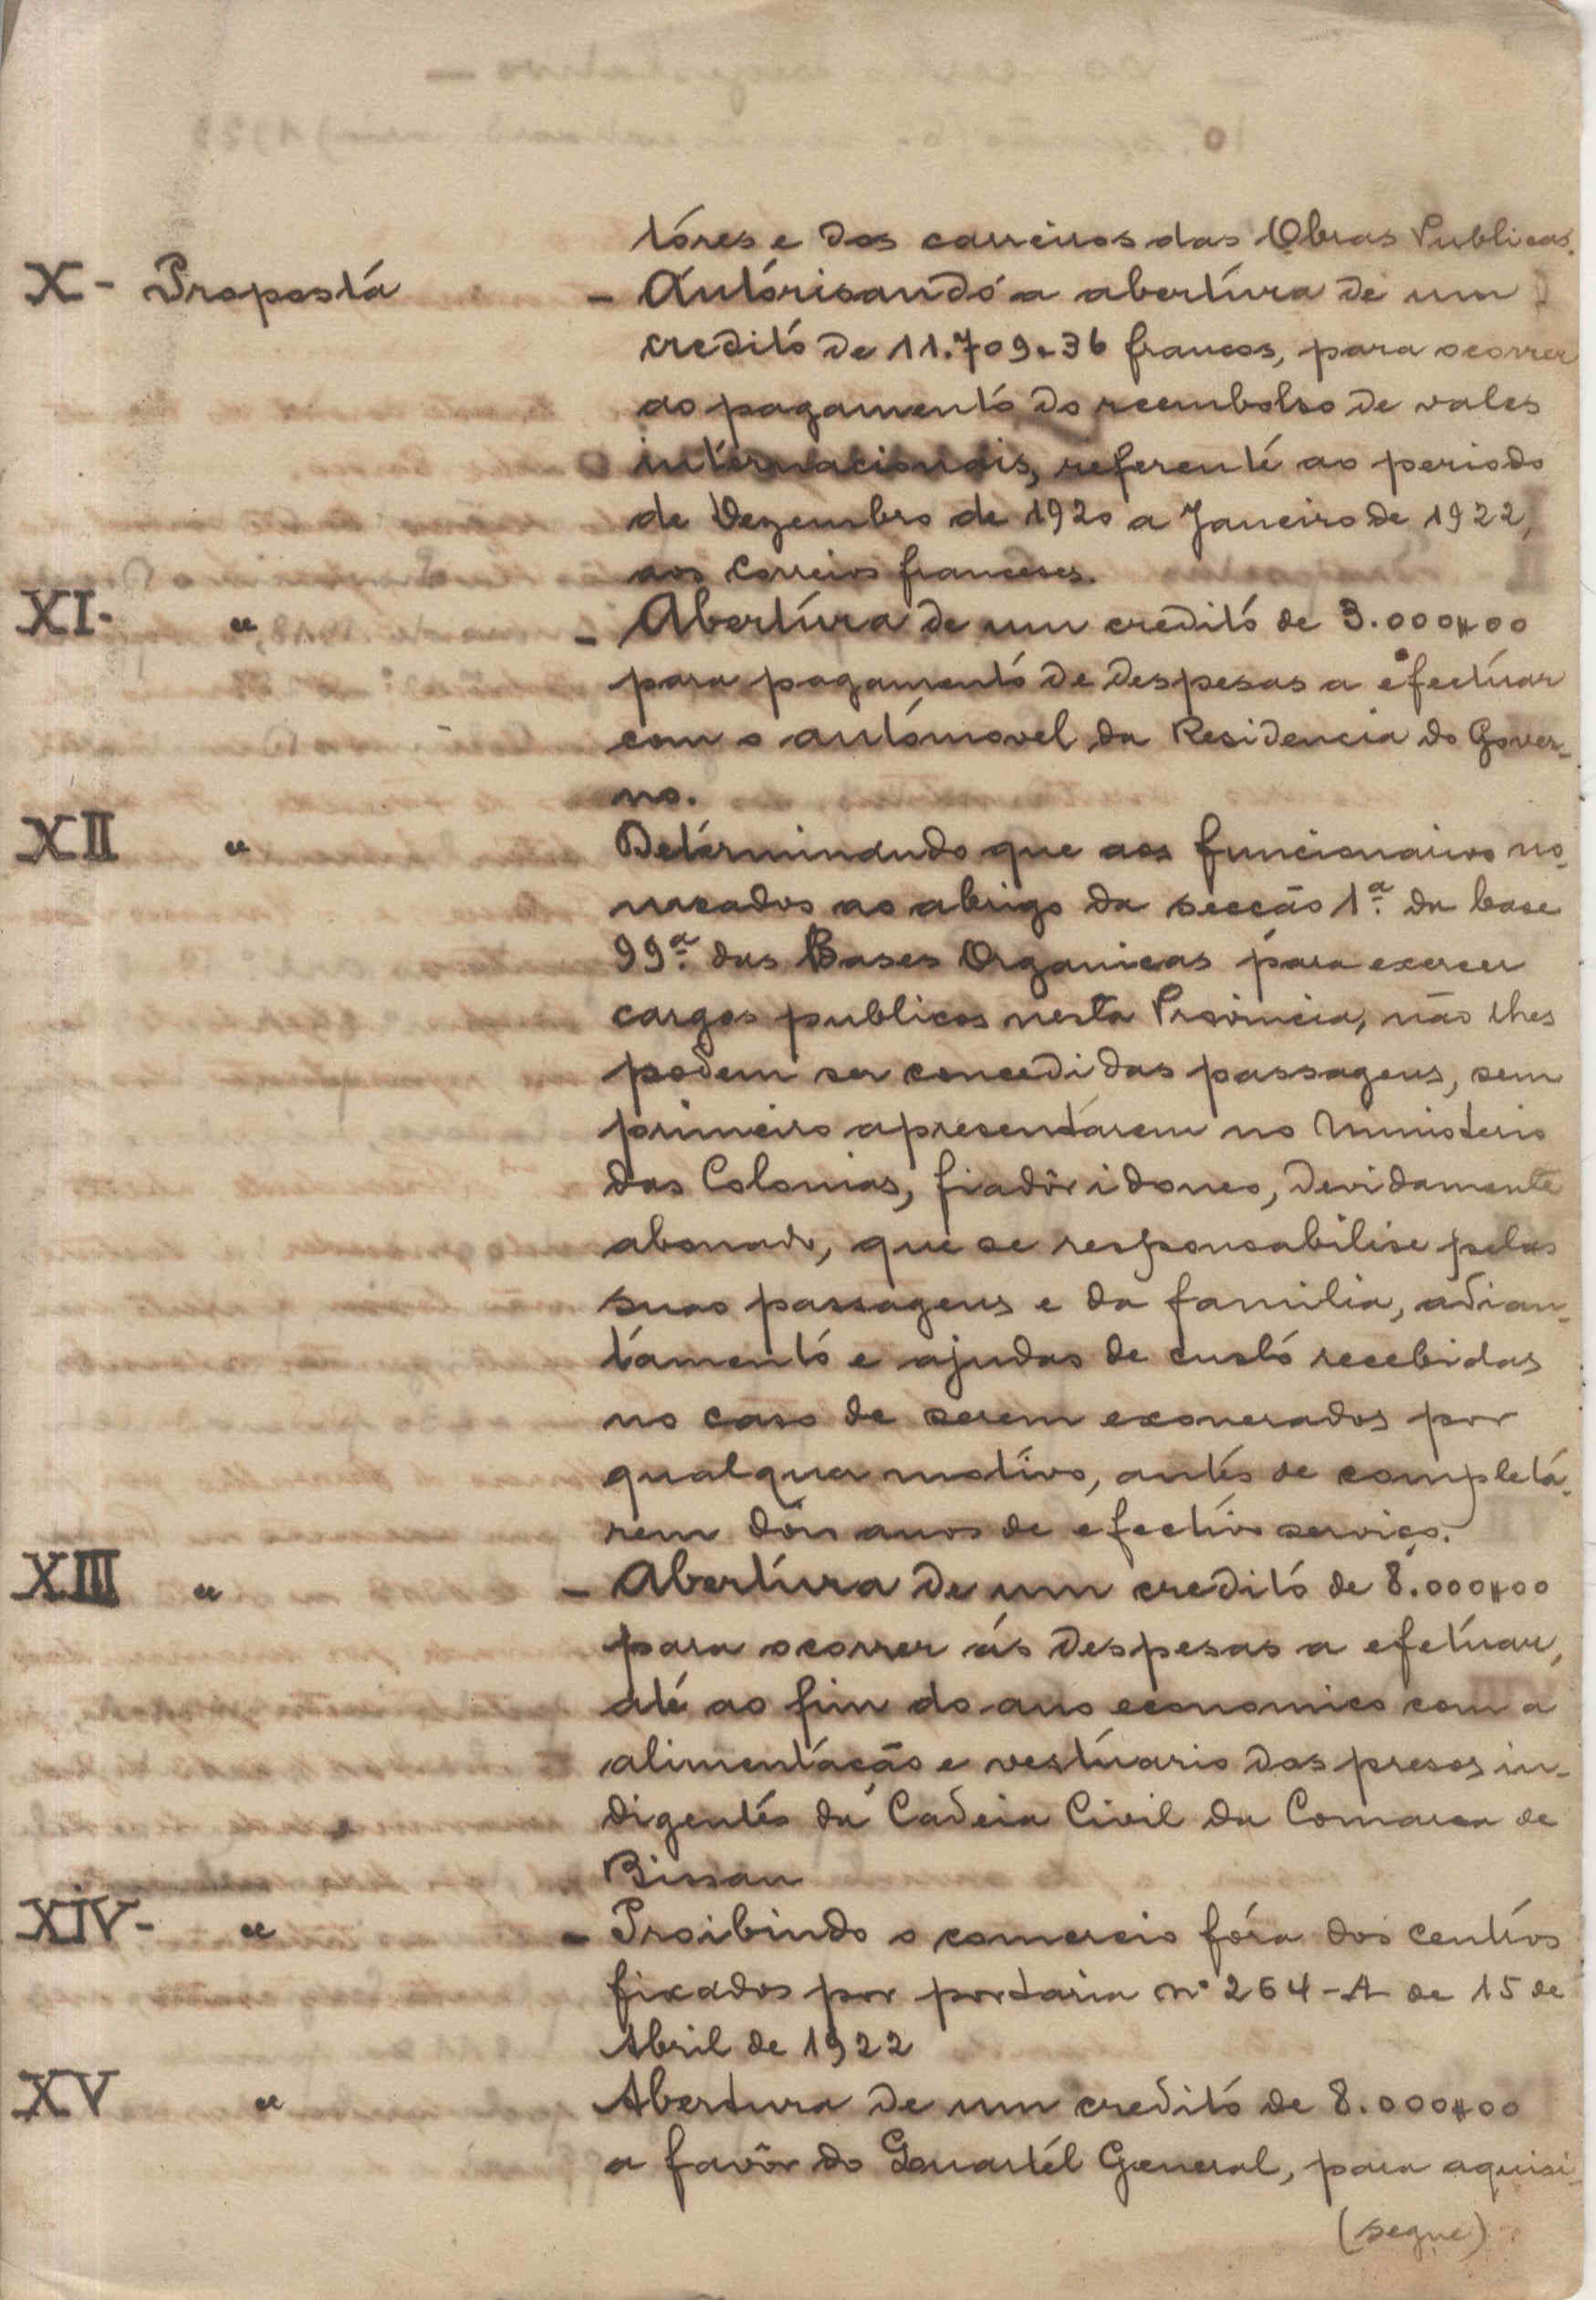 tóres e dos carreiros das Obras Publicas.
X - Proposta - Autórisando a abertura de um
credito de 11.709.36 francos, para ocorrer
ao pagamento do reembolso de vales
internacionais, referente ao periodo
de Dezembro de 1920 a Janeiro de 1922,
aos Correios franceses.
XI- " - Abertura de um credito de 3.000$00
para pagamento de despesas a efectuar
com o automovel da Residencia do Gover-
no.
XII " Determinando que aos funcionarios no-
meados ao abrigo da secção 1ª. da base
99ª. das Bases Organicas para exercer
cargos publicos nesta Provincia, não lhes
podem ser concedidas passagens, sem
primeiro apresentarem no Ministerio
das Colonias, fiadôr idoneo, devidamente
abonado, que se responsabilise pelas
suas passagens e da familia, adian-
tamento e ajudas de custo recebidas
no caso de serem exonerados por
qualquer motivo, antes de completa-
rem dois anos de efectivo serviço.
XIII " - Abertura de um credito de 8.000$00
para ocorrer ás despesas a efetuar,
até ao fim do ano economico com a
alimentação e vestuario dos presos in-
digentes da Cadeia Civil da Comarca de
Bissau
XIV- " - Proibindo o comercio fóra dos centros
fixados por portaria nº 264-A de 15 de
Abril de 1922
XV " Abertura de um credito de 8.000$00
a favôr do Quartél General, para aquisi-
(segue)